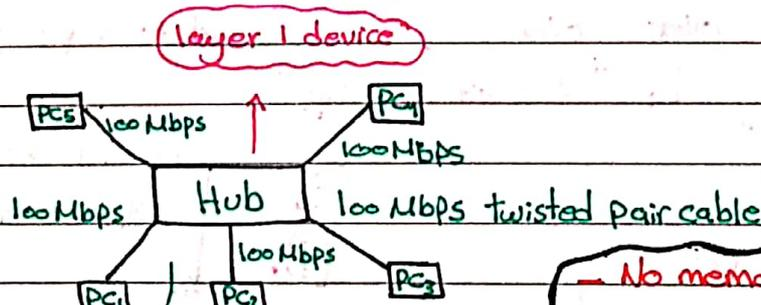 layer 1 device
PC5 100 Mbps PC4
100 Mbps
100 Mbps Hub 100 Mbps twisted pair cable
100 Mbps
PC1 PC2 PC3
- No